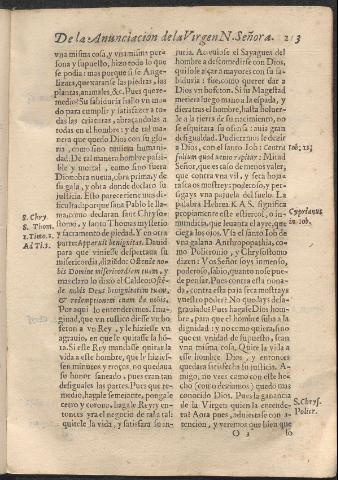 De la Anunciacion de la Virgen N. Señora. 213
vna misma cosa, y vna misma per-
sona y supuesto, hizo todo lo que
se podia: mas porque si se Ange-
lizara, que xaranse las piedras, las
plantas, animales, &c. Pues que re-
medio? Su sabiduria hallo vn mo-
do para cumplir y satisfazer a to-
das las criaturas, abraçandolas a
todas en el hombre: y de tal ma-
nera que quedo Dios con su glo-
ria, como sino tuuiera humani-
dad. De tal manera hombre passi-
ble y mortal, como sino fuera
Dios obra nueua, obra prima, y de
su gala, y obra donde declaro su
justicia. Esso parece tiene mas di-
ficultad: porque san Pablo le lla-
ma, como declaran sant Chryso-
stomo, y santo Thomas mysterio
y sacramento de piedad. Y en otra
parte: Apparuit benignitas. Dauid
para que viniesse despertaua su
misericordia, diziẽdo: Ostende no-
bis Domine misericordiam tuam, y
mas claro lo dixo el Caldeo: Ostẽ-
de nobis Deus benignitatem tuam,
& redemptionem tuam da nobis.
Por aqui lo entenderemos. Ima-
ginad, que vn rustico diesse vn bo-
feton a vn Rey, y le hiziesse vn
agrauio, en que le quitasse la hõ-
ra. Si este Rey mandasse quitar la
vida a este hombre, que le hizies-
sen minutos y trozos, no quedaua
su honor saneado, pues eran tan
desiguales las partes. Pues que re-
medio, hagale semejante, pongale
cetro y corona, hagale Rey, y en-
tonces yra el negocio de tal a tal:
quitele la vida, y satisfara su in-
S. Chry.
S. Thom.
1. Timo. 2.
Ad Ti. 3.
juria. Atreuiose el Sayagues del
hombre a descomedirse con Dios,
quisose alçar a mayores con su sa-
biduria: fue, como querer dar a
Dios vn bofeton. Si su Magestad
metiera luego mano a la espada, y
diera tras el hombre, hasta boluer-
le a la tierra de su nacimiento, no
se esquitara su ofensa: auia gran
desigualdad. Pudieramosle dezir
a Dios, con el santo Iob: Contra
folium quod vento rapitur: Mirad
Señor, que es caso de menos valer,
que contra vna vil, y seca hoja
saca os mostreys poderoso, y per-
sigays vna pajuela del suelo. La
palabra Hebrea K.A.S. significa
propiamente este estiercol, o in-
mundicia, que leuanta el ayre, que
ciega los ojos. Vsa el santo Iob de
vna galana Anthropopathia, co-
mo Policronio, y Chrysostomo
dizen: Vos Señor soys inmenso,
poderoso, sabio, quanto no se pue-
de pensar. Pues contra esta nona-
da, y contra esta paja seca mostrays
vuestro poder? No quedays desa-
grauiado: Pues hagase Dios hom-
bre, para que el hombre suba a la
dignidad: y no como quiera, sino
que en vnidad de supuesto, sean
vna misma cosa. Quite la vida a
esse hombre Dios, y entonces
quedara satisfecha su justicia. A-
migo, no veis: como con este he-
cho (como deziamos) quedo mas
conocido Dios. Pues la ganancia
de la Virgen quien la encende-
ra? Aora pues, aduiertase con a-
tencion, y veremos que bien que
Iob, 13;
Cyprianus
in Iob.
S. Chrys.
Policr.
O 3
lo